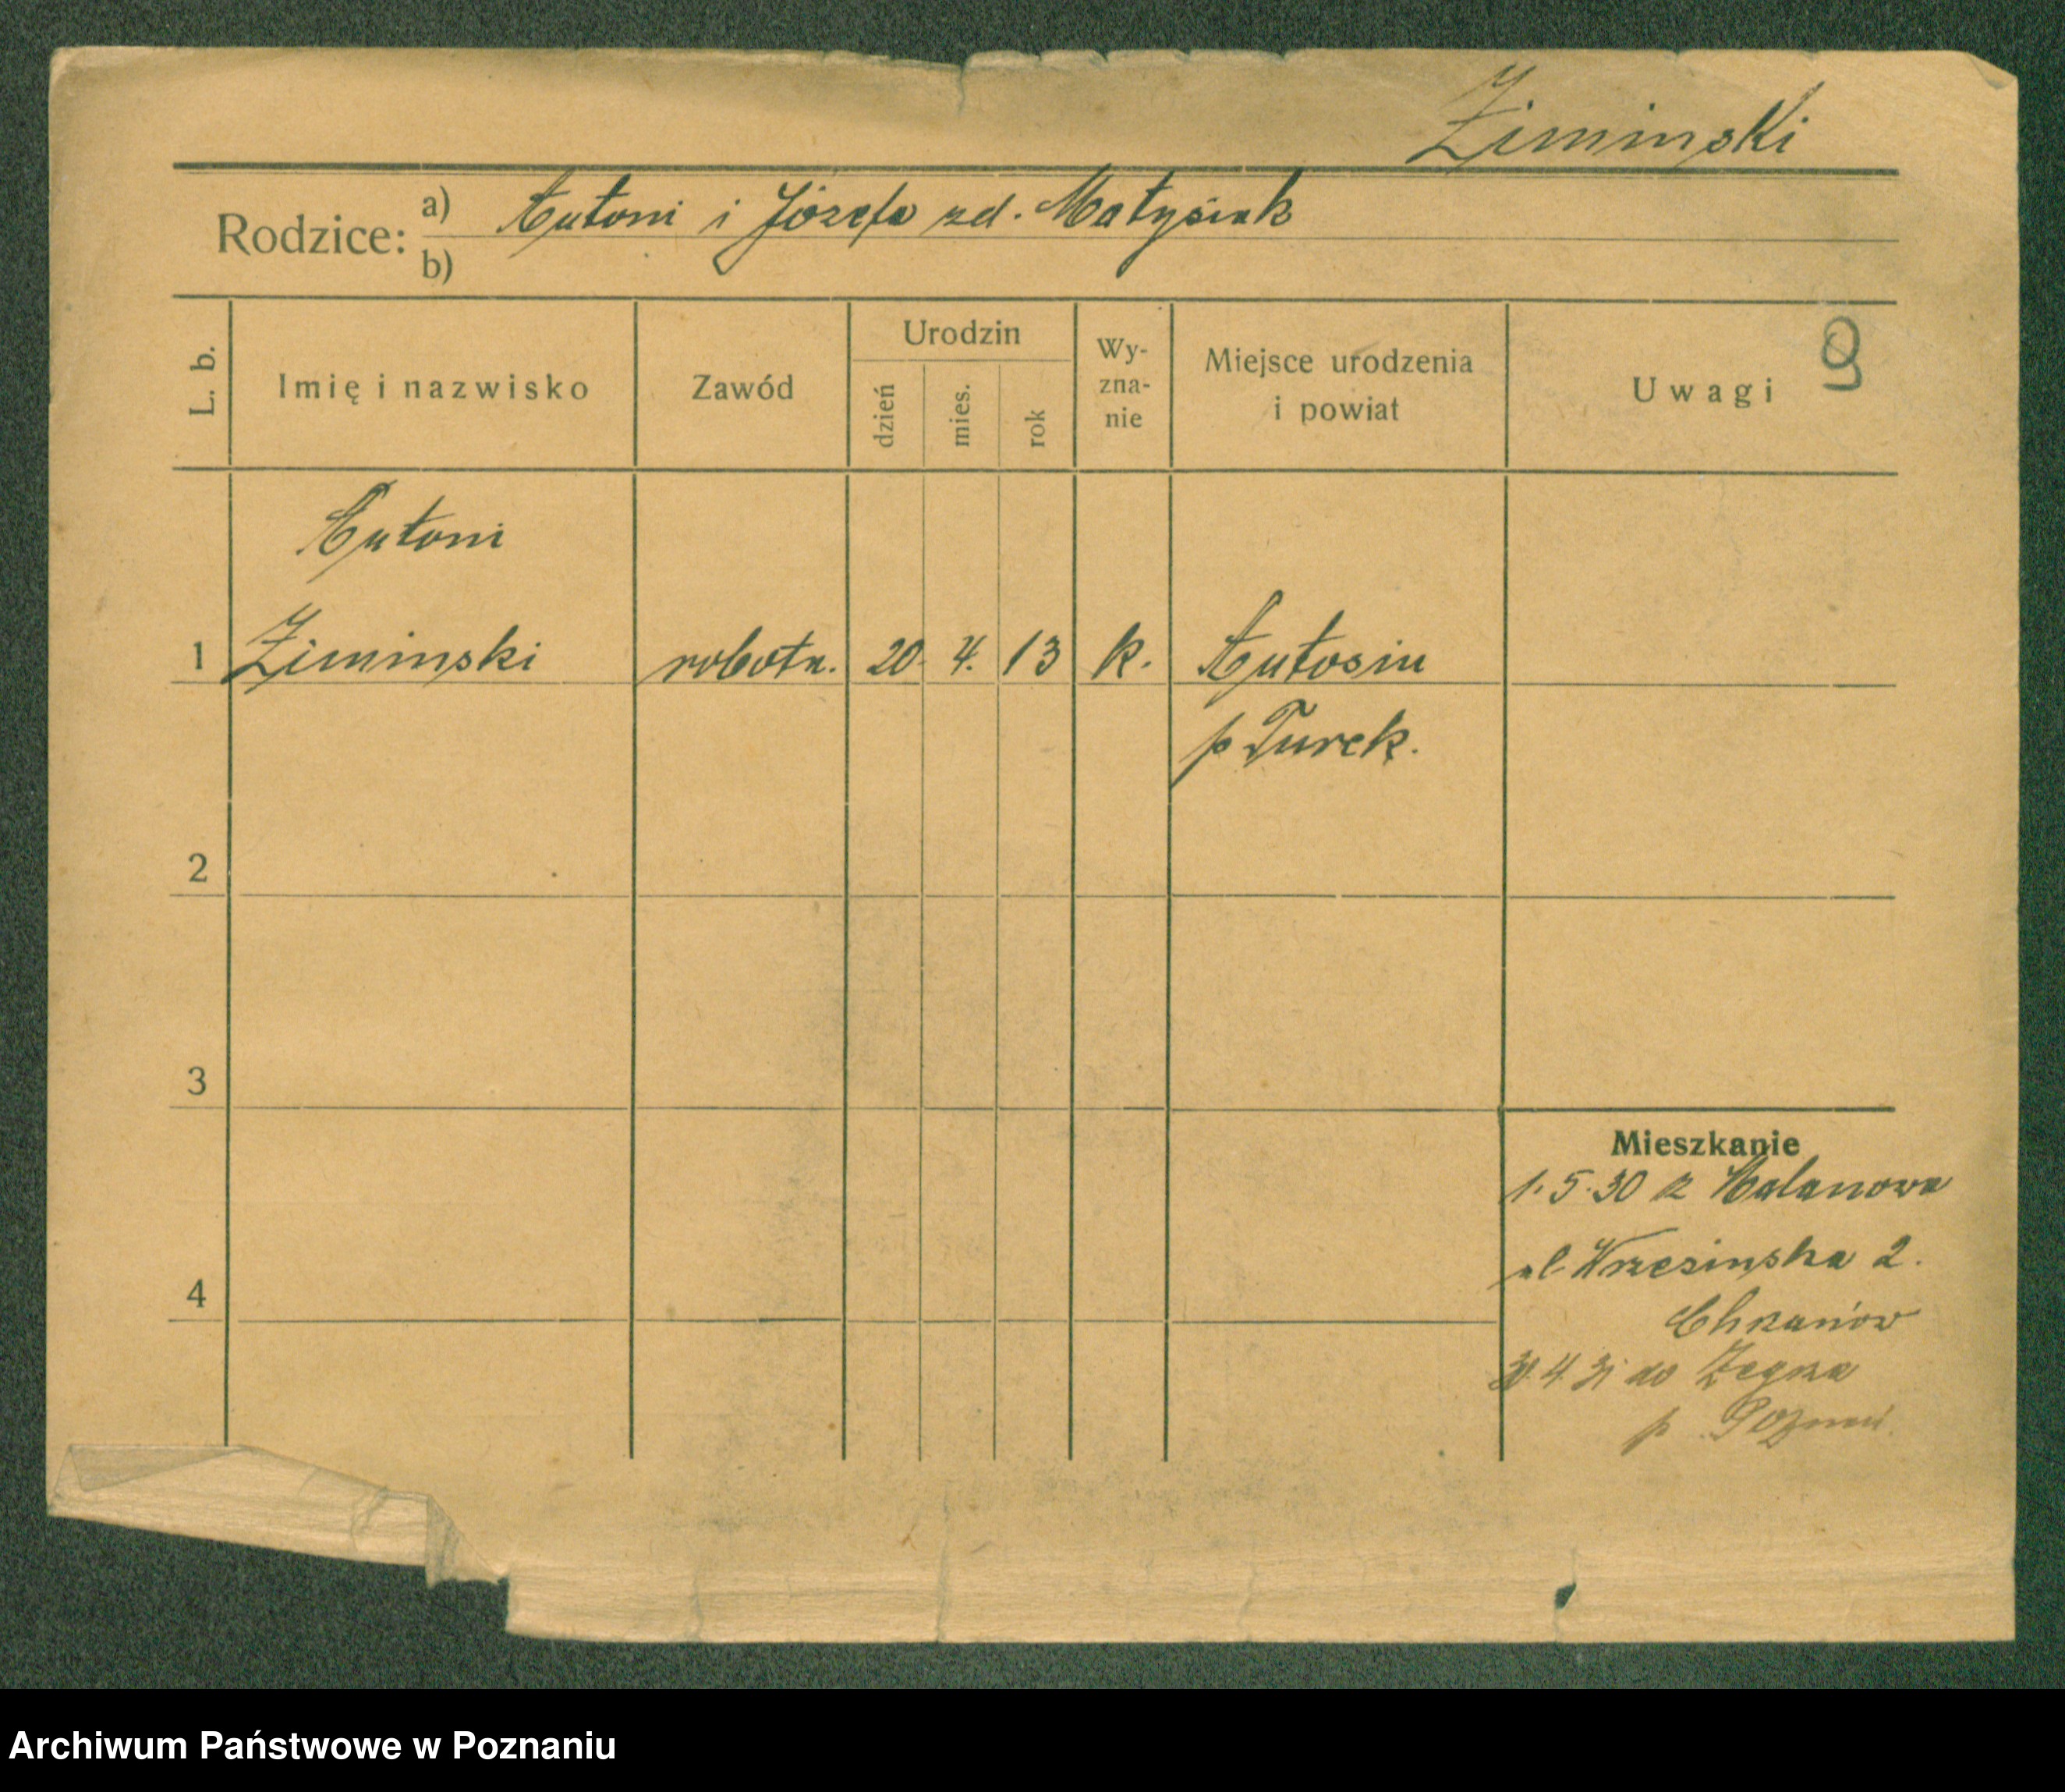 Ziminski
Rodzice: a) Antoni i Józefa zd. Matysiak
b)
L. b. Imię i nazwisko Zawód Urodzin dzień mies. rok Wy-zna-nie Miejsce urodzenia i powiat Uwagi 9
Antoni
1 Ziminski robotn. 20. 4. 13 k. Antosin
p Turek.
2
3
Mieszkanie
1.5.30 z Malanowa
ul Wrzesinska 2.
4
30.4 31 do
p. Poznań
Archiwum Państwowe w Poznaniu